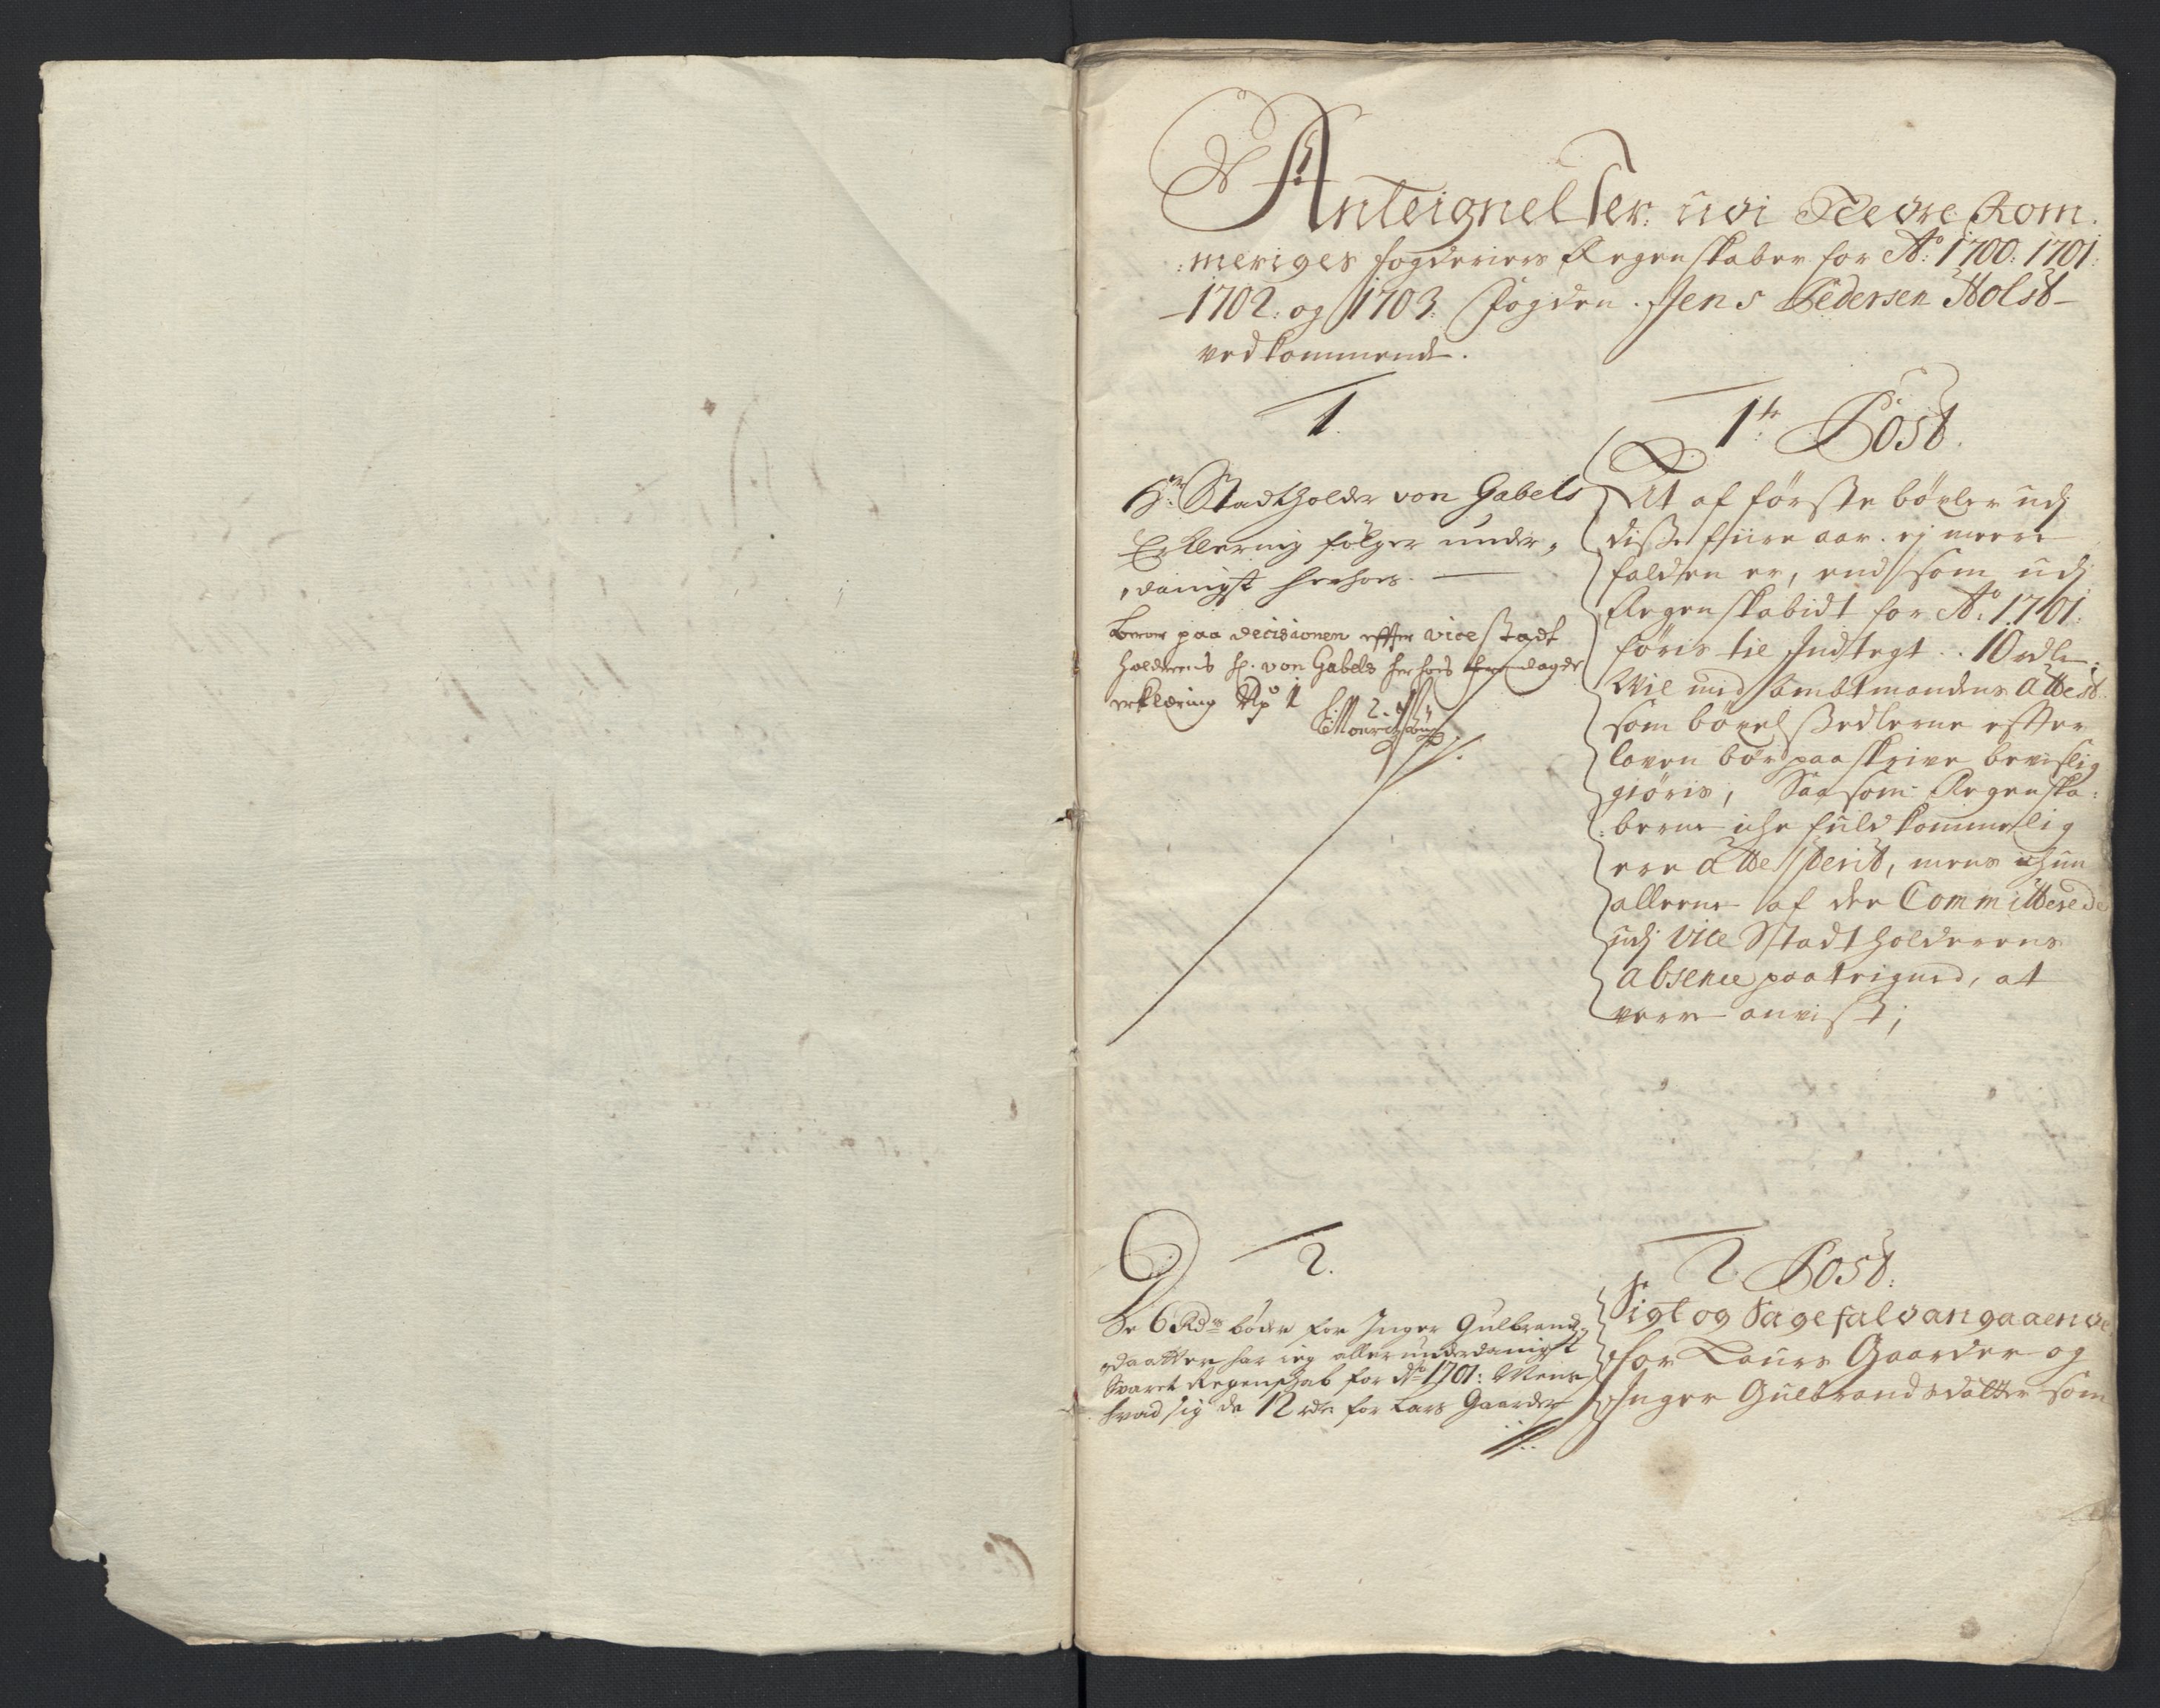 Anteignelser: udi Nedre Rom.
:meriges fogderiers Regenskaber for Ao: 1700: 1701:
1702: og 1703: Fogden Jens Pedersen Holst
vedkommende.
1.
Hr: Stadtholder von Gabels
Erklering følger under„
„danigst herhos.
beror paa decisionen effter vice Stadt
holderens H. von Gabels herhos
erklæring No 1
1te Post.
At af første bøxler udj
disse fiire aar. ej meere
falden er, end som udj
Regenskabidt for Ao: 1701:
føris til Indtegt .. 10 rdlr:
Wil med Ambtmandens Attest
som bøxel Sedlerne efter
loven bør paaskrive bevislig
giøris, Saasom Regenska:
:berne iche fuldkommelig
ere Attesterit, mens ichun
allerne af der Committerede
udj Vice Stadtholderens
absence paateigned, at
vere anvist;
2.
De 6 Rdr bøder for Inger Gulbrands„
„daatter har ieg allerunderdanigst
Svaret Regenskab for Ao 1701: Mens
hvad sig de 12 rdr for Lars Gaarder
2 Post:
Sigt og Sagefald angaaende
for Laurs Gaarder og
Inger Gulbrandsdatter som